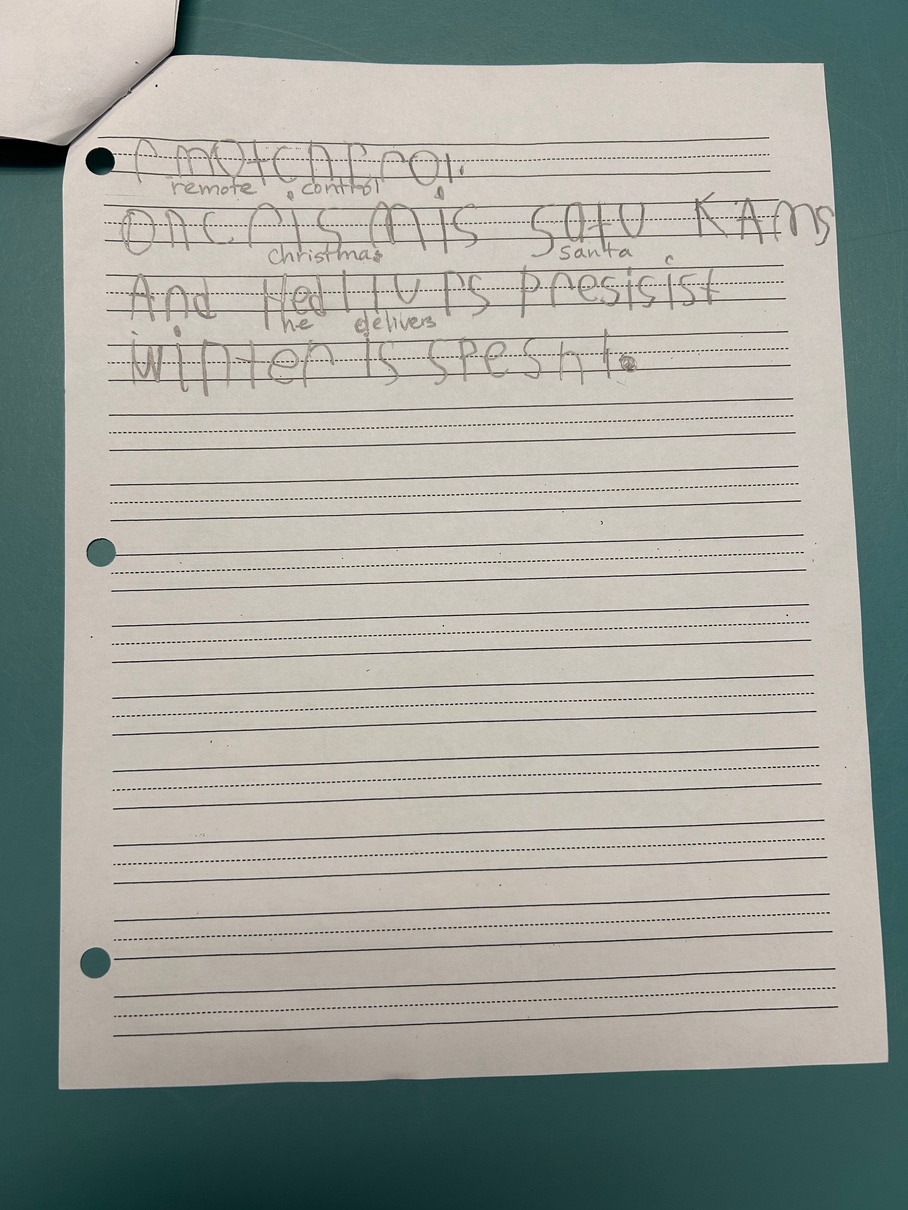 rmotcnProl.
remote control
On Cris mis satu KAms
christmas santa
And Hedlivrs presisist
he delivers
winter is speshl.